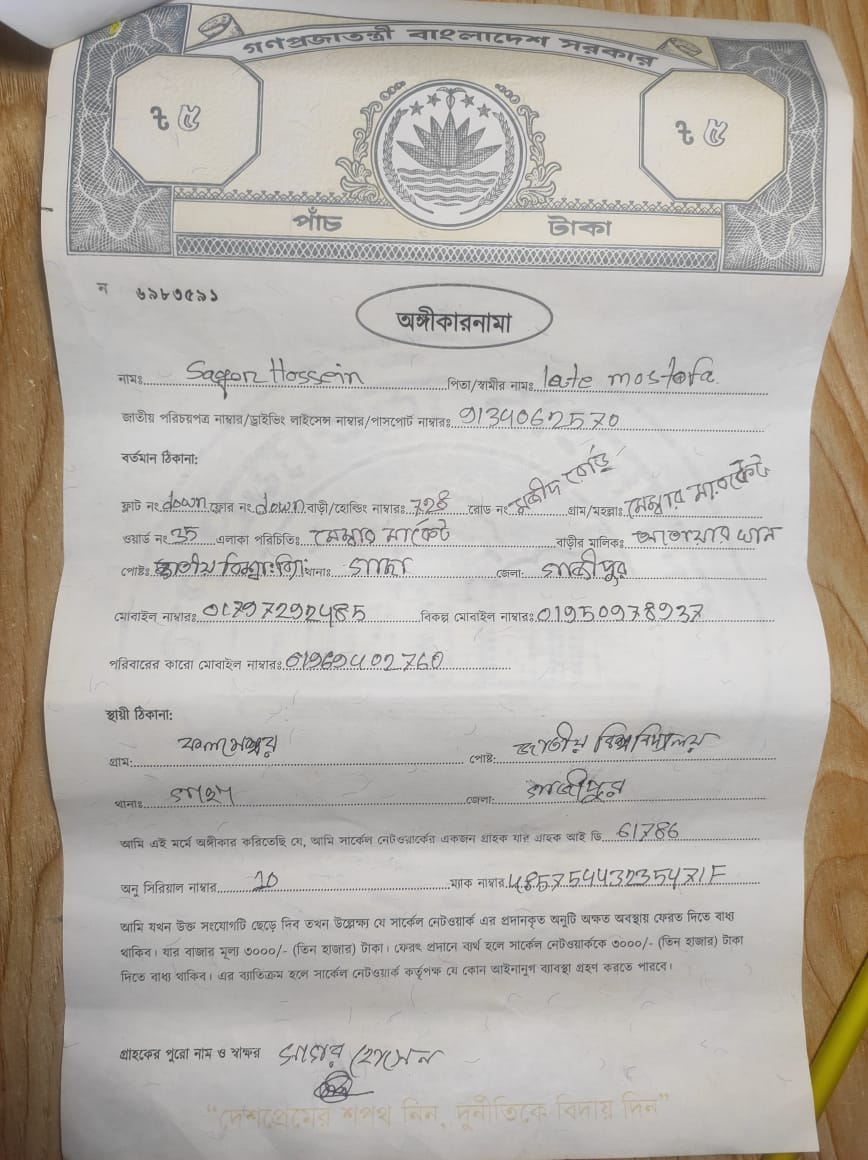 গণপ্রজাতন্ত্রী বাংলাদেশ সরকার
৳ ৫ ৳ ৫
পাঁচ টাকা
ন ৬৯৮৩৫৯১
অঙ্গীকারনামা
নামঃ Sagor Hossein পিতা/স্বামীর নামঃ late mostofa
জাতীয় পরিচয়পত্র নাম্বার/ড্রাইভিং লাইসেন্স নাম্বার/পাসপোর্ট নাম্বারঃ 9134062570
বর্তমান ঠিকানা:
ফ্লাট নং down ফ্লোর নং down বাড়ী/হোল্ডিং নাম্বারঃ 728 রোড নং রোড গ্রাম/মহল্লাঃ মেম্বার মার্কেট
ওয়ার্ড নং 35 এলাকা পরিচিতিঃ মেম্বার মার্কেট বাড়ীর মালিকঃ খান
পোষ্টঃ জাতীয় থানাঃ গাছা জেলা: গাজীপুর
মোবাইল নাম্বারঃ 01797292485 বিকল্প মোবাইল নাম্বারঃ 01950978937
পরিবারের কারো মোবাইল নাম্বারঃ 01969402760
স্থায়ী ঠিকানা:
গ্রাম: কলমেশ্বর পোষ্ট: জাতীয় বিশ্ববিদ্যালয়
থানাঃ গাছা জেলা: গাজীপুর
আমি এই মর্মে অঙ্গীকার করিতেছি যে, আমি সার্কেল নেটওয়ার্কের একজন গ্রাহক যার গ্রাহক আই ডি 61786
অনু সিরিয়াল নাম্বার 10 ম্যাক নাম্বার 48575443235471F
আমি যখন উক্ত সংযোগটি ছেড়ে দিব তখন উল্লেক্ষ্য যে সার্কেল নেটওয়ার্ক এর প্রদানকৃত অনুটি অক্ষত অবস্থায় ফেরত দিতে বাধ্য
থাকিব। যার বাজার মূল্য ৩০০০/- (তিন হাজার) টাকা। ফেরৎ প্রদানে ব্যর্থ হলে সার্কেল নেটওয়ার্ককে ৩০০০/- (তিন হাজার) টাকা
দিতে বাধ্য থাকিব। এর ব্যাতিক্রম হলে সার্কেল নেটওয়ার্ক কর্তৃপক্ষ যে কোন আইনানুগ ব্যাবস্থা গ্রহণ করতে পারবে।
গ্রাহকের পুরো নাম ও স্বাক্ষর সাগর হোসেন
“দেশপ্রেমের শপথ নিন, দুর্নীতিকে বিদায় দিন”